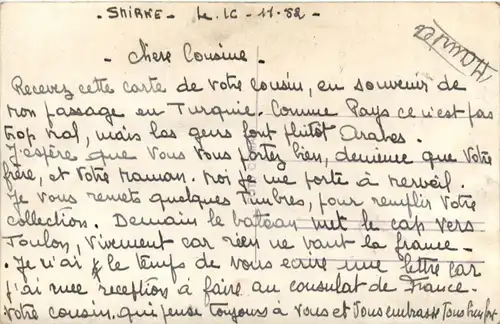 - SMIRNE - Le 16 - 11 - 52 -
- Chere Cousine -
Recevez cette carte de votre cousin, en souvenir de
mon passage en Turquie. Comme Pays ce n'est pas
trop mal, mais les gens font plutôt Arabes.
J'espère que vous vous portez bien, dememe que votre
frère, et votre Maman. Moi je me porte à merveil.
Je vous remets quelques Timbres, pour remplir votre
collection. Demain le batteau met le cap vers
Toulon, vivement car rien ne vaut la france -
. Je n'ai le temps de vous écrire une lettre car
j'ai une reception à faire au consulat de France -
Votre cousin, qui pense toujours à vous et vous embrasse Tous bien fort